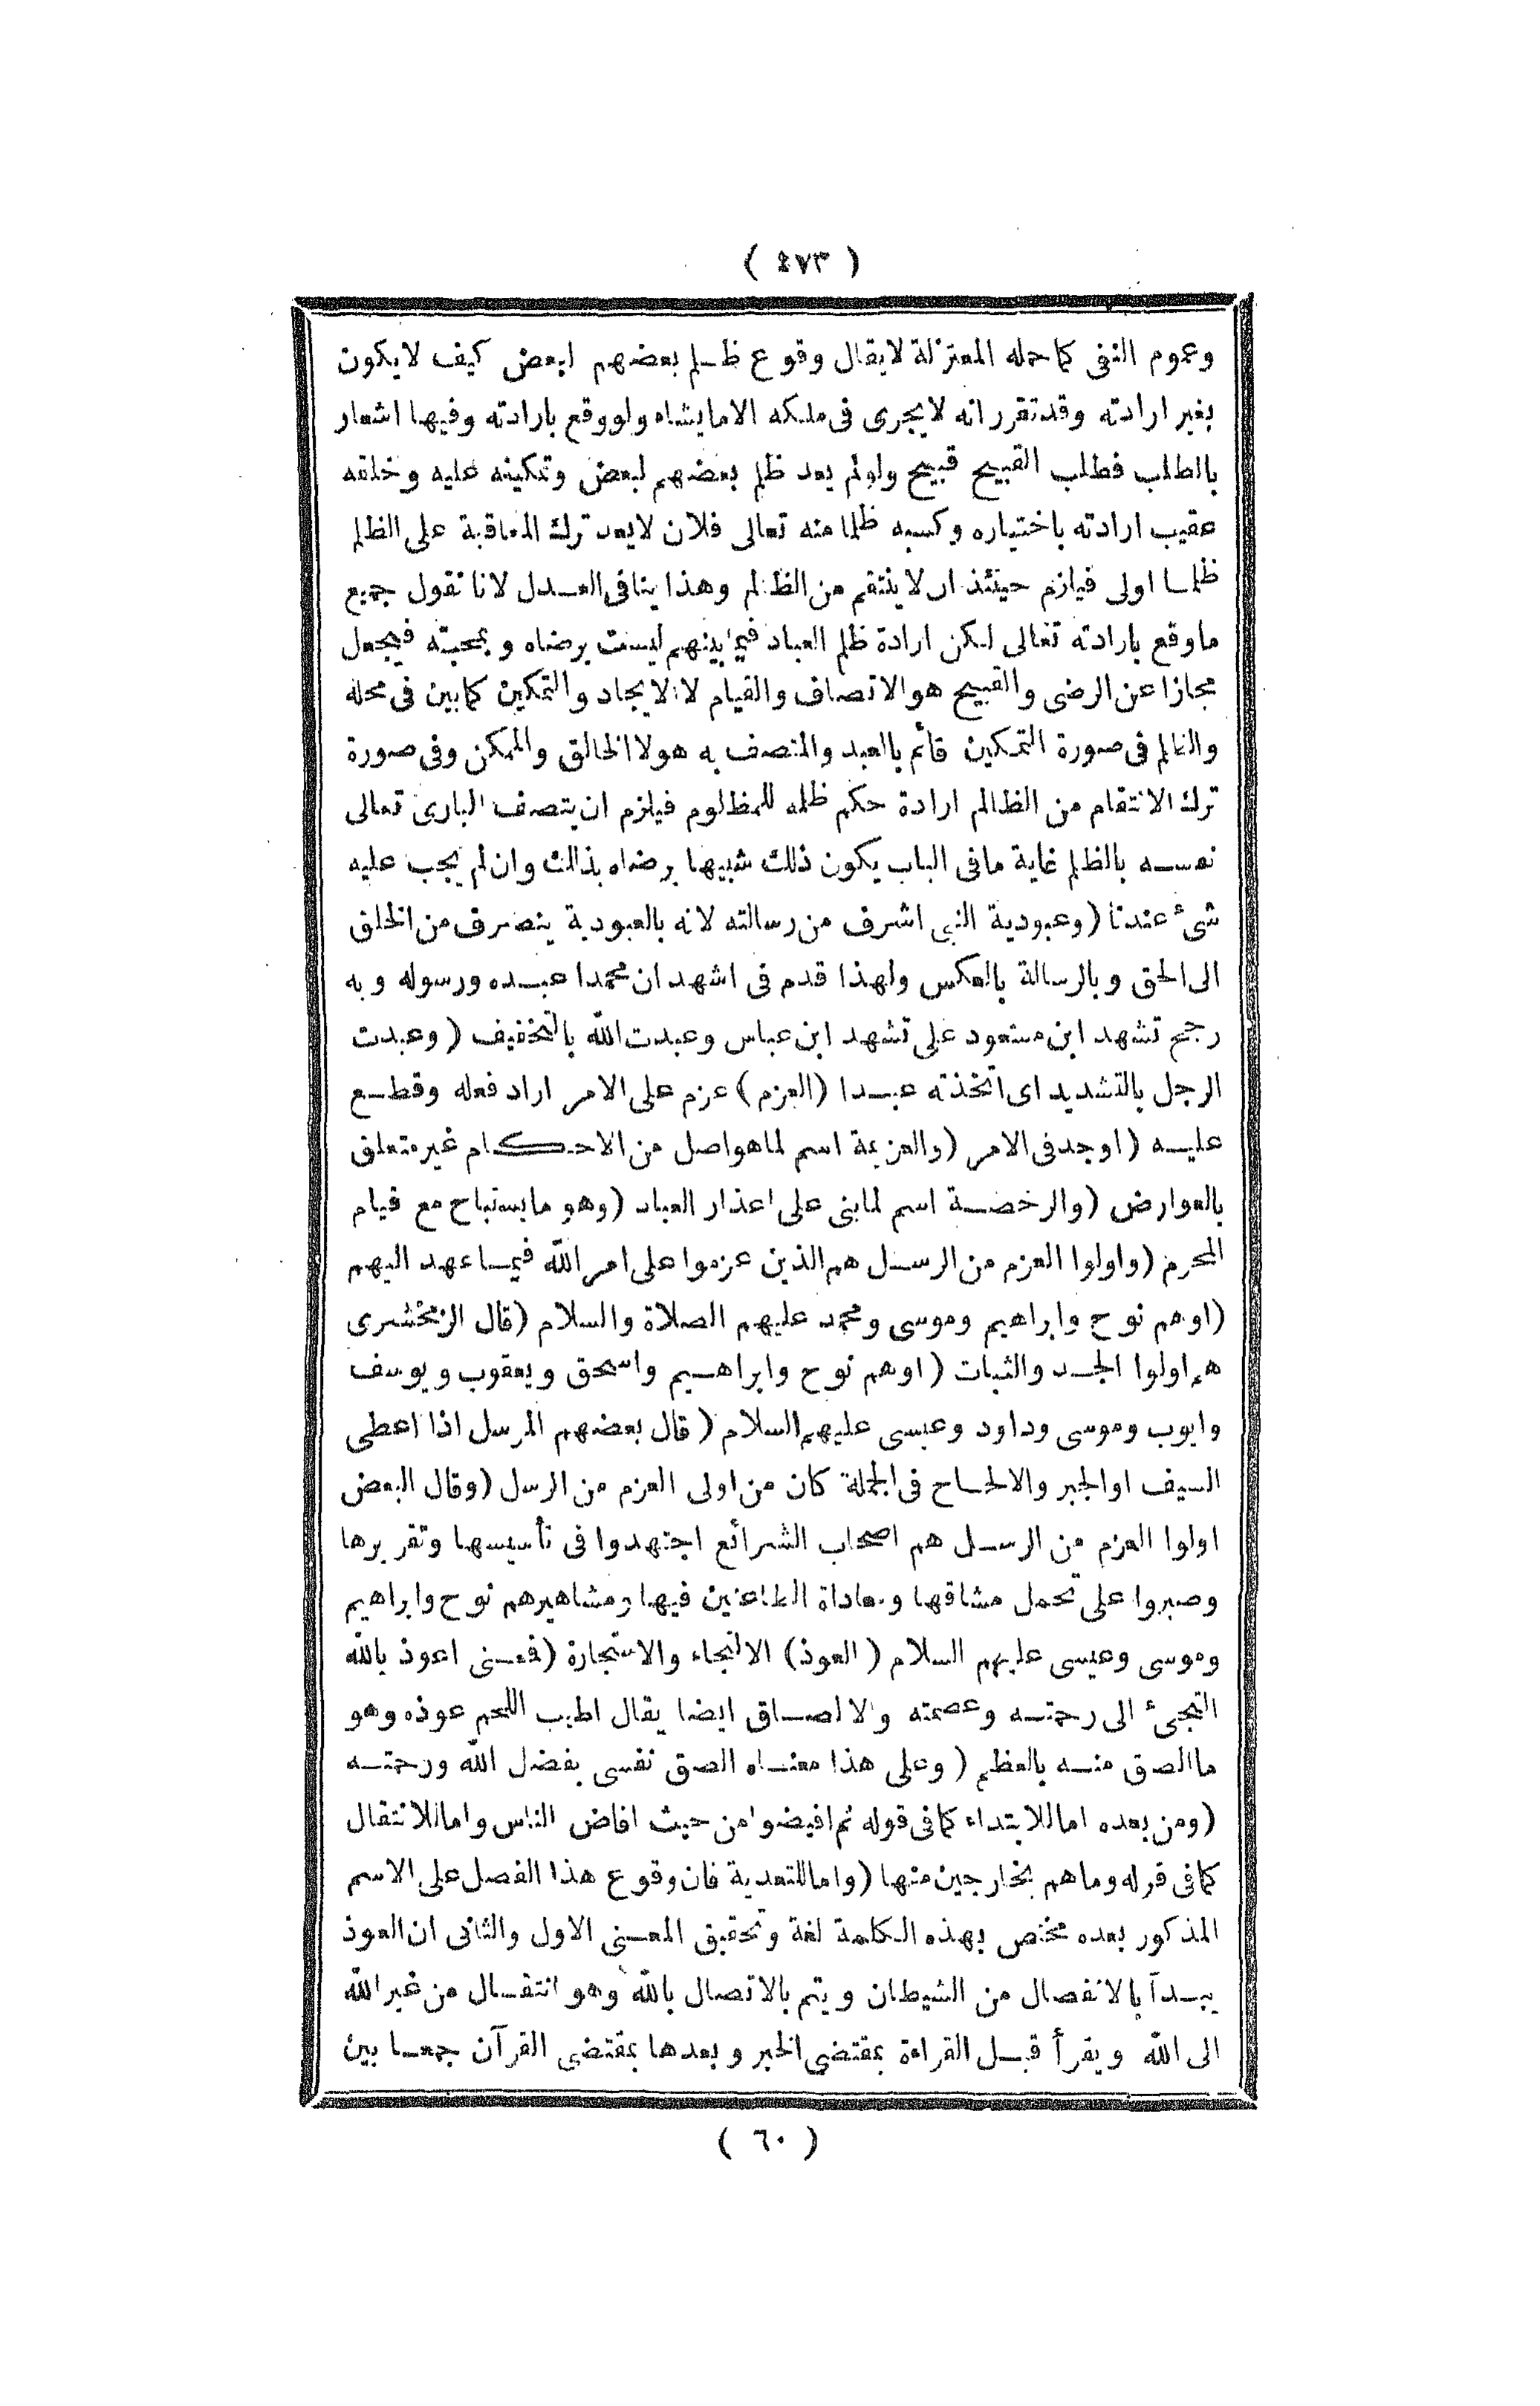 ( ٤٧٣ )
وعموم النفى كما حمله المعتزلة لا يقال وقوع ظلم بعضهم لبعض كيف لا يكون
بغير ارادته وقد تقرر انه لا يجرى فى ملكه الا ما يشاه ولو وقع بارادته وفيها اشعار
بالطلب فطلب القبيح قبيح ولو لم يعد ظلم بعضهم لبعض وتمكينه عليه وخلقه
عقيب ارادته باختياره وكسبه ظلما منه تعالى فلان لا يعد ترك المعاقبة على الظلم
ظلما اولى فيلزم حينئذ ان لا ينتقم من الظالم وهذا ينافى العدل لانا نقول جميع
ما وقع بارادته تعالى لكن ارادة ظلم العباد فيما بينهم ليست برضاه وبمحبته فيجعل
مجازا عن الرضى والقبيح هو الاتصاف والقيام لا الايجاد والتمكين كما بين فى محله
والظلم فى صورة التمكين قائم بالعبد والمتصف به هو لا الخالق والممكن وفى صورة
ترك الانتقام من الظالم ارادة حكم ظلمه للمظلوم فيلزم ان يتصف البارى تعالى
نفسه بالظلم غاية ما فى الباب يكون ذلك شبيها برضاه بذلك وان لم يجب عليه
شئ عندنا ( وعبودية النبى اشرف من رسالته لانه بالعبودية ينصرف من الخلق
الى الحق وبالرسالة بالعكس ولهذا قدم فى اشهد ان محمدا عبده ورسوله وبه
رجح تشهد ابن مسعود على تشهد ابن عباس وعبدت الله بالتخفيف ( وعبدت
الرجل بالتشديد اى اتخذته عبدا ( العزم ) عزم على الامر اراد فعله وقطع
عليه ( او جد فى الامر ( والعزيمة اسم لما هو اصل من الاحكام غير متعلق
بالعوارض ( والرخصة اسم لما بنى على اعذار العباد ( وهو ما يستباح مع قيام
المحرم ( واولوا العزم من الرسل هم الذين عزموا على امر الله فيما عهد اليهم
( او هم نوح وابراهيم وموسى ومحمد عليهم الصلاة والسلام ( قال الزمخشرى
هم اولوا الجد والثبات ( او هم نوح وابراهيم واسحق ويعقوب ويوسف
وايوب وموسى وداود وعيسى عليهم السلام ( قال بعضهم المرسل اذا اعطى
السيف او الجبر والالحاح فى الجملة كان من اولى العزم من الرسل ( وقال البعض
اولوا العزم من الرسل هم اصحاب الشرائع اجتهدوا فى تأسيسها وتقريرها
وصبروا على تحمل مشاقها ومعاداة الطاعنين فيها ومشاهيرهم نوح وابراهيم
وموسى وعيسى عليهم السلام ( العوذ ) الالتجاء والاستجارة ( فمعنى اعوذ بالله
التجئ الى رحمته وعصمته والالصاق ايضا يقال اطيب اللحم عوذه وهو
ما الصق منه بالعظم ( وعلى هذا معناه الصق نفسى بفضل الله ورحمته
( ومن بعده اما للابتداء كما فى قوله ثم افيضوا من حيث افاض الناس واما للانتقال
كما فى قوله وما هم بخارجين منها ( واما للتعدية فان وقوع هذا الفصل على الاسم
المذكور بعده مختص بهذه الكلمة لغة وتحقيق المعنى الاول والثانى ان العوذ
يبدآ بالانفصال من الشيطان ويتم بالاتصال بالله وهو انتقال من غير الله
الى الله ويقرأ قبل القراءة بمقتضى الخبر وبعدها بمقتضى القرآن جمعا بين
( ٦٠ )